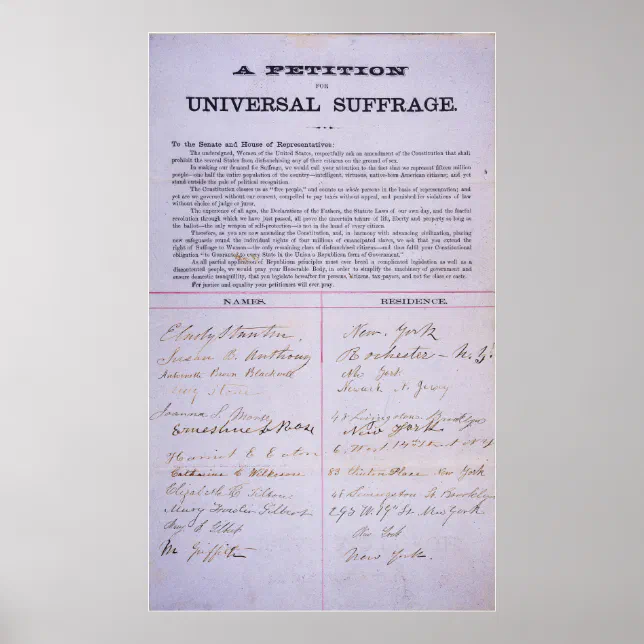 A PETITION
FOR
UNIVERSAL SUFFRAGE.
To the Senate and House of Representatives:
The undersigned, Women of the United States, respectfully ask an amendment of the Constitution that shall
prohibit the several States from disfranchising any of their citizens on the ground of sex.
In making our demand for Suffrage, we would call your attention to the fact that we represent fifteen million
people—one half the entire population of the country—intelligent, virtuous, native-born American citizens; and yet
stand outside the pale of political recognition.
The Constitution classes us as "free people," and counts us whole persons in the basis of representation; and
yet are we governed without our consent, compelled to pay taxes without appeal, and punished for violations of law
without choice of judge or juror.
The experience of all ages, the Declarations of the Fathers, the Statute Laws of our own day, and the fearful
revolution through which we have just passed, all prove the uncertain tenure of life, liberty and property so long as
the ballot—the only weapon of self-protection—is not in the hand of every citizen.
Therefore, as you are now amending the Constitution, and, in harmony with advancing civilization, placing
new safeguards round the individual rights of four millions of emancipated slaves, we ask that you extend the
right of Suffrage to Woman—the only remaining class of disfranchised citizens—and thus fulfil your Constitutional
obligation "to Guarantee to every State in the Union a Republican form of Government."
As all partial application of Republican principles must ever breed a complicated legislation as well as a
discontented people, we would pray your Honorable Body, in order to simplify the machinery of government and
ensure domestic tranquillity, that you legislate hereafter for persons, citizens, tax-payers, and not for class or caste.
For justice and equality your petitioners will ever pray.
NAMES. RESIDENCE.
E Cady Stanton, New York
Susan B. Anthony Rochester - N.Y.
Antoinette Brown Blackwell New York
Lucy Stone Newark N. Jersey
Joanna S. Morse 48 Livingston Brooklyn
Ernestine L Rose New York
Harriet E Eaton 6 West 14th Street N.Y
Catharine C Wilkeson 83 Clinton Place New York
Elizabeth R Tilton 48 Livingston St Brooklyn
Mary Fowler Gilbert 293 W. 19th St New York
Gilbert New York
M Griffith New York.